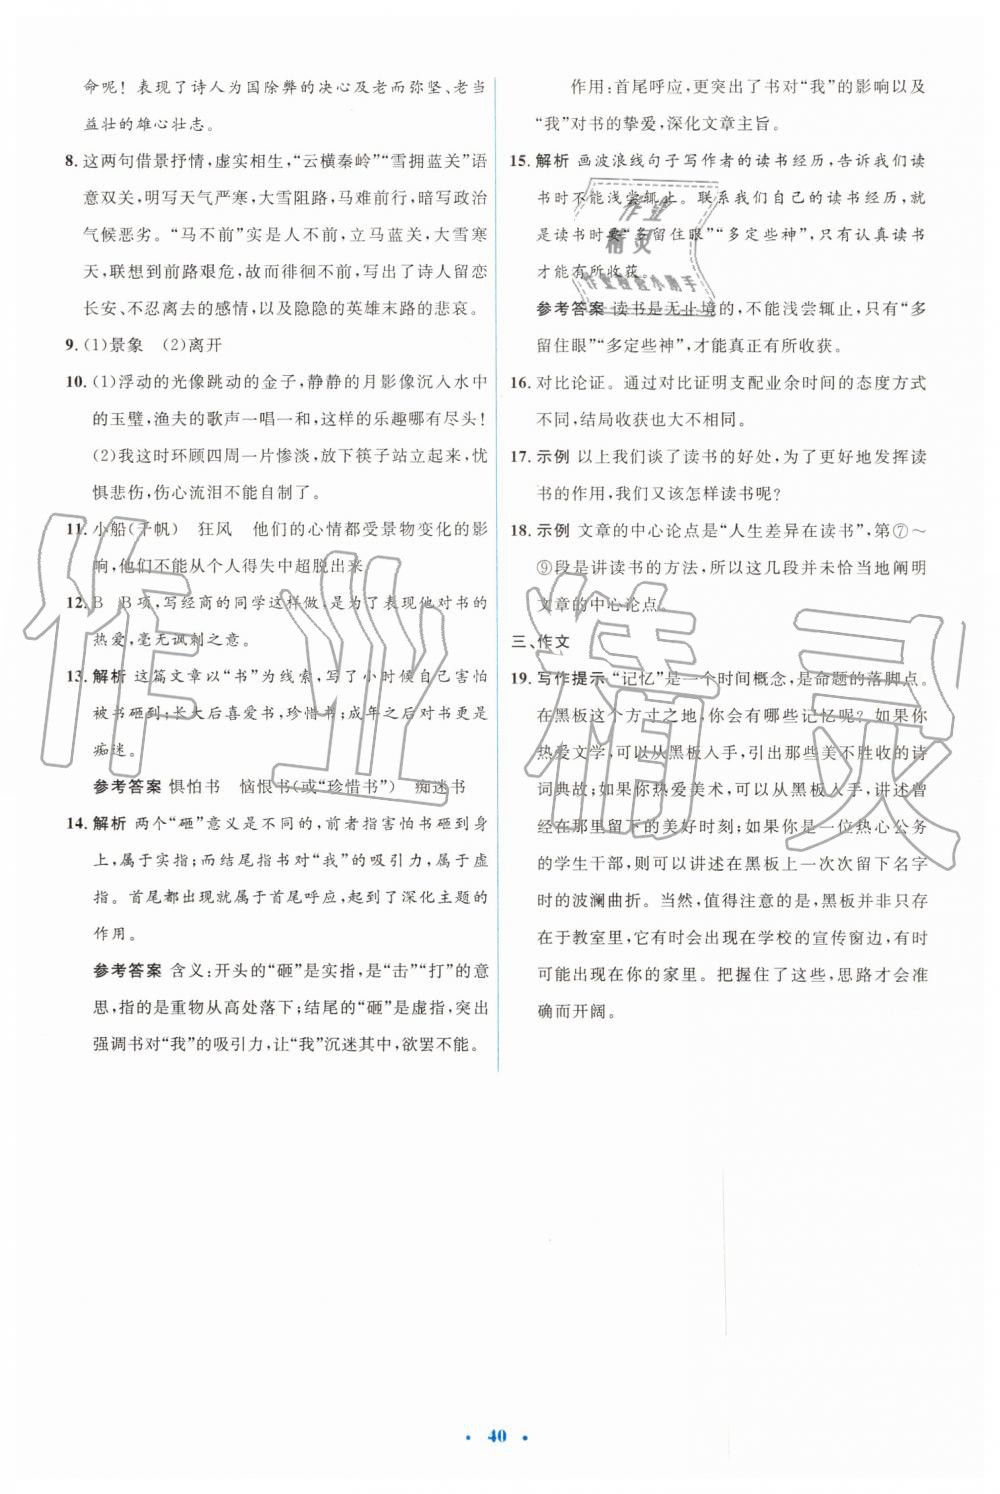 命呢！表现了诗人为国除弊的决心及老而弥坚、老当
益壮的雄心壮志。
8. 这两句借景抒情，虚实相生，“云横秦岭”“雪拥蓝关”语
意双关，明写天气严寒，大雪阻路，马难前行，暗写政治
气候恶劣。“马不前”实是人不前，立马蓝关，大雪寒
天，联想到前路艰危，故而徘徊不前，写出了诗人留恋
长安、不忍离去的感情，以及隐隐的英雄末路的悲哀。
9. (1)景象　(2)离开
10. (1)浮动的光像跳动的金子，静静的月影像沉入水中
的玉璧，渔夫的歌声一唱一和，这样的乐趣哪有尽头！
(2)我这时环顾四周一片惨淡，放下筷子站立起来，忧
惧悲伤，伤心流泪不能自制了。
11. 小船(孑帆)　狂风　他们的心情都受景物变化的影
响，他们不能从个人得失中超脱出来
12. B　B项，写经商的同学这样做，是为了表现他对书的
热爱，毫无讽刺之意。
13. 解析　这篇文章以“书”为线索，写了小时候自己害怕
被书砸到；长大后喜爱书，珍惜书；成年之后对书更是
痴迷。
参考答案　惧怕书　恼恨书(或“珍惜书”)　痴迷书
14. 解析　两个“砸”意义是不同的，前者指害怕书砸到身
上，属于实指；而结尾指书对“我”的吸引力，属于虚
指。首尾都出现就属于首尾呼应，起到了深化主题的
作用。
参考答案　含义：开头的“砸”是实指，是“击”“打”的意
思，指的是重物从高处落下；结尾的“砸”是虚指，突出
强调书对“我”的吸引力，让“我”沉迷其中，欲罢不能。
作用：首尾呼应，更突出了书对“我”的影响以及
“我”对书的挚爱，深化文章主旨。
15. 解析　画波浪线句子写作者的读书经历，告诉我们读
书时不能浅尝辄止。联系我们自己的读书经历，就
是读书时要“多留住眼”“多定些神”，只有认真读书
才能有所收获。
参考答案　读书是无止境的，不能浅尝辄止，只有“多
留住眼”“多定些神”，才能真正有所收获。
16. 对比论证。通过对比证明支配业余时间的态度方式
不同，结局收获也大不相同。
17. 示例　以上我们谈了读书的好处，为了更好地发挥读
书的作用，我们又该怎样读书呢？
18. 示例　文章的中心论点是“人生差异在读书”，第⑦～
⑨段是讲读书的方法，所以这几段并未恰当地阐明
文章的中心论点。
三、作文
19. 写作提示　“记忆”是一个时间概念，是命题的落脚点。
在黑板这个方寸之地，你会有哪些记忆呢？如果你
热爱文学，可以从黑板入手，引出那些美不胜收的诗
词典故；如果你热爱美术，可以从黑板入手，讲述曾
经在那里留下的美好时刻；如果你是一位热心公务
的学生干部，则可以讲述在黑板上一次次留下名字
时的波澜曲折。当然，值得注意的是，黑板并非只存
在于教室里，它有时会出现在学校的宣传窗边，有时
可能出现在你的家里。把握住了这些，思路才会准
确而开阔。
作业
精灵
作业检查小助手
作业精灵
· 40 ·